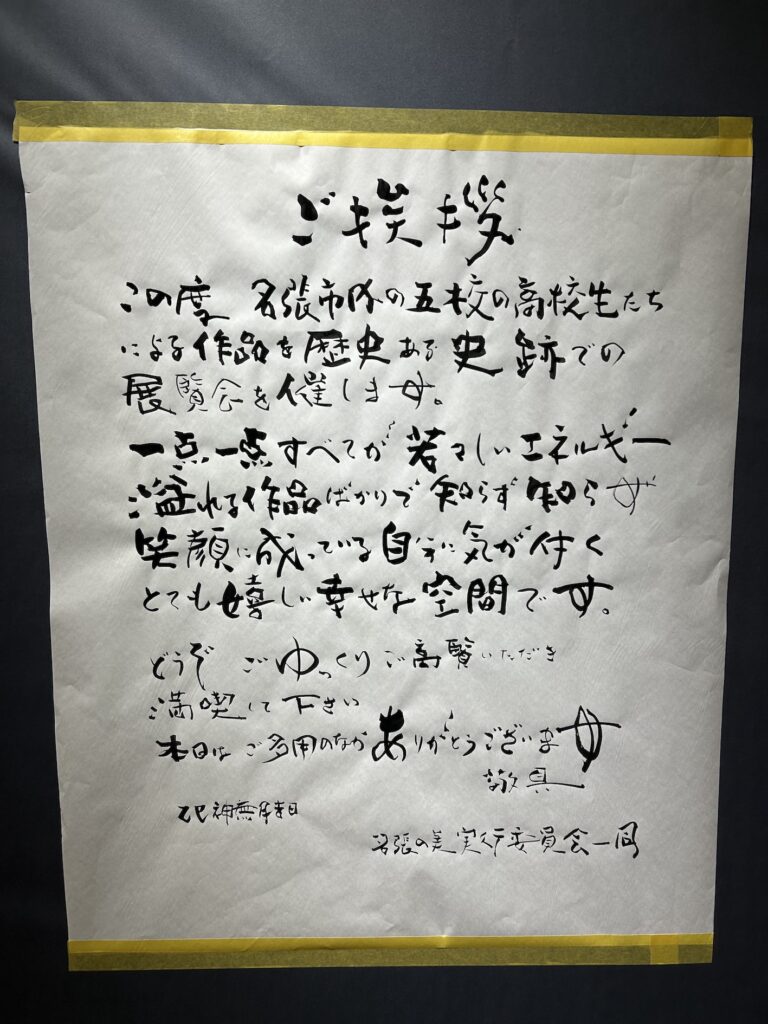 ご挨拶
この度 名張市内の五校の高校生たち
による作品を歴史ある史跡での
展覧会を催します。
一点一点すべてが若々しいエネルギー
溢れる作品ばかりで知らず知らず
笑顔に成っている自分に気が付く
とても嬉しい幸せな空間です。
どうぞ ごゆっくりご高覧いただき
満喫して下さい
本日はご多用のなかありがとうございます
敬具
乙巳神無月吉日
名張の美実行委員会一同